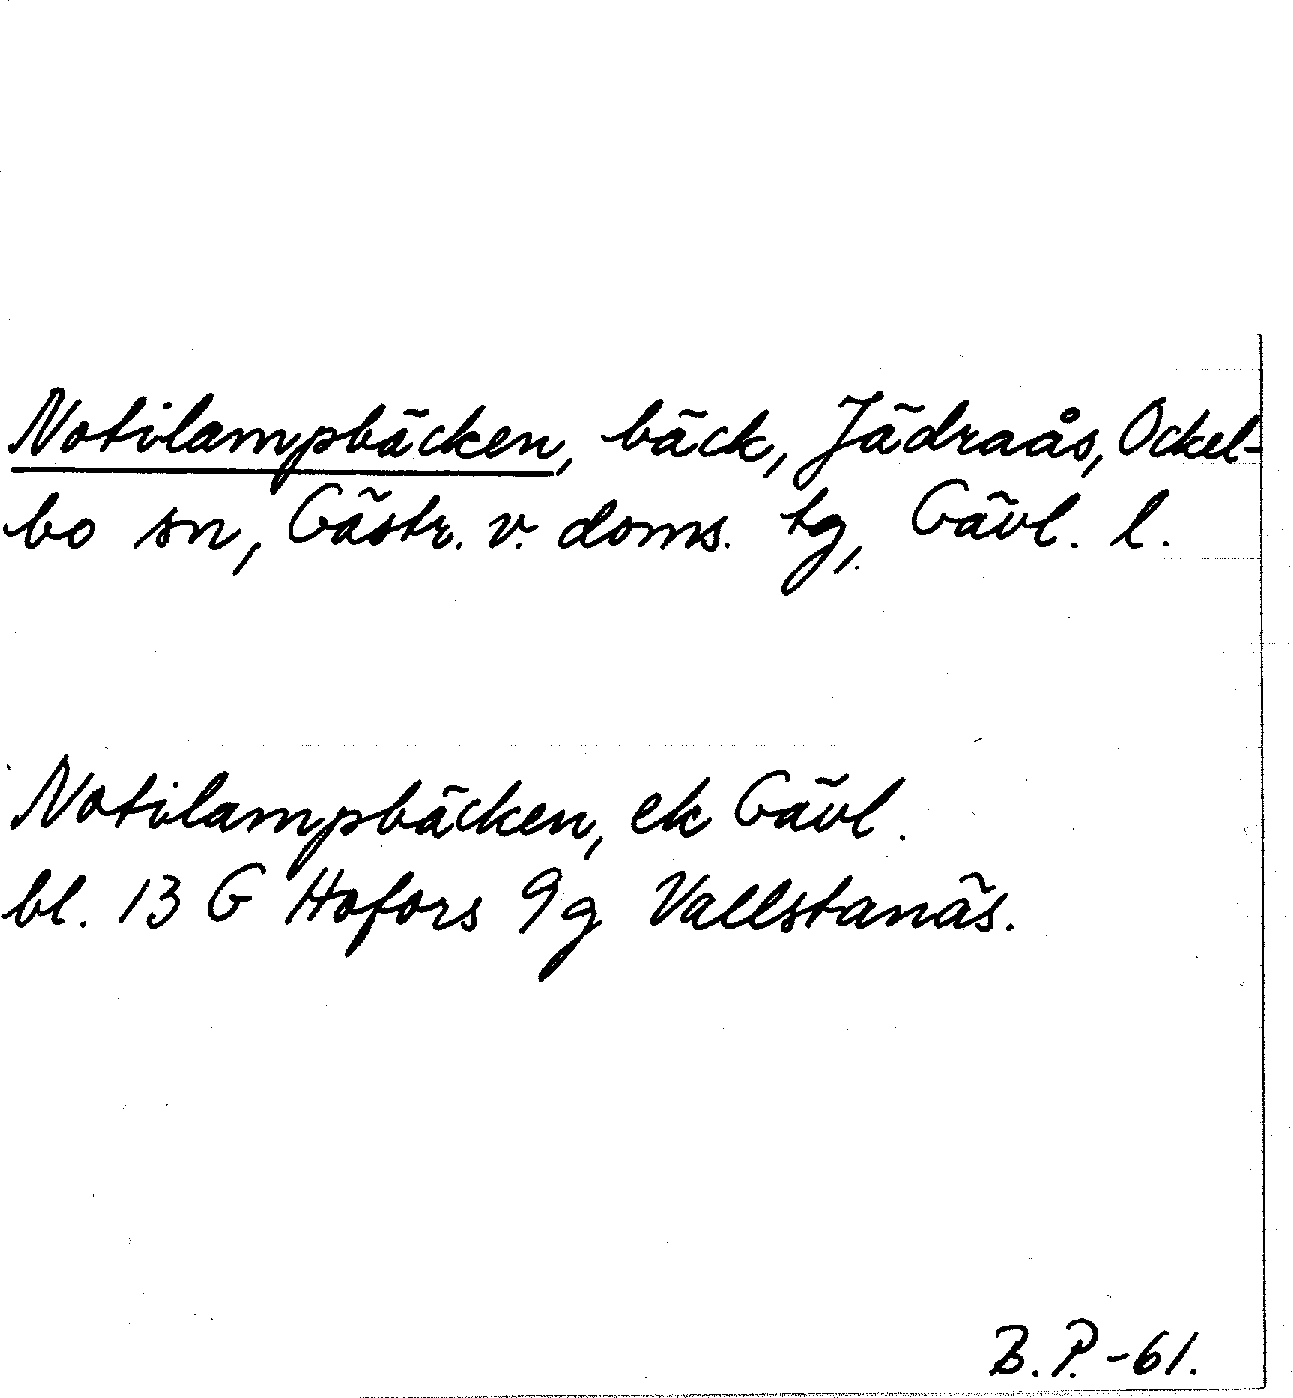 Notilampbäcken, bäck, Jädraås, Ockel-
bo sn, Gästr. v. doms. tg, Gävl. l.
Notilampbäcken, ek Gävl.
bl. 13 G Hofors 9g Vallstanäs.
B.P.-61.